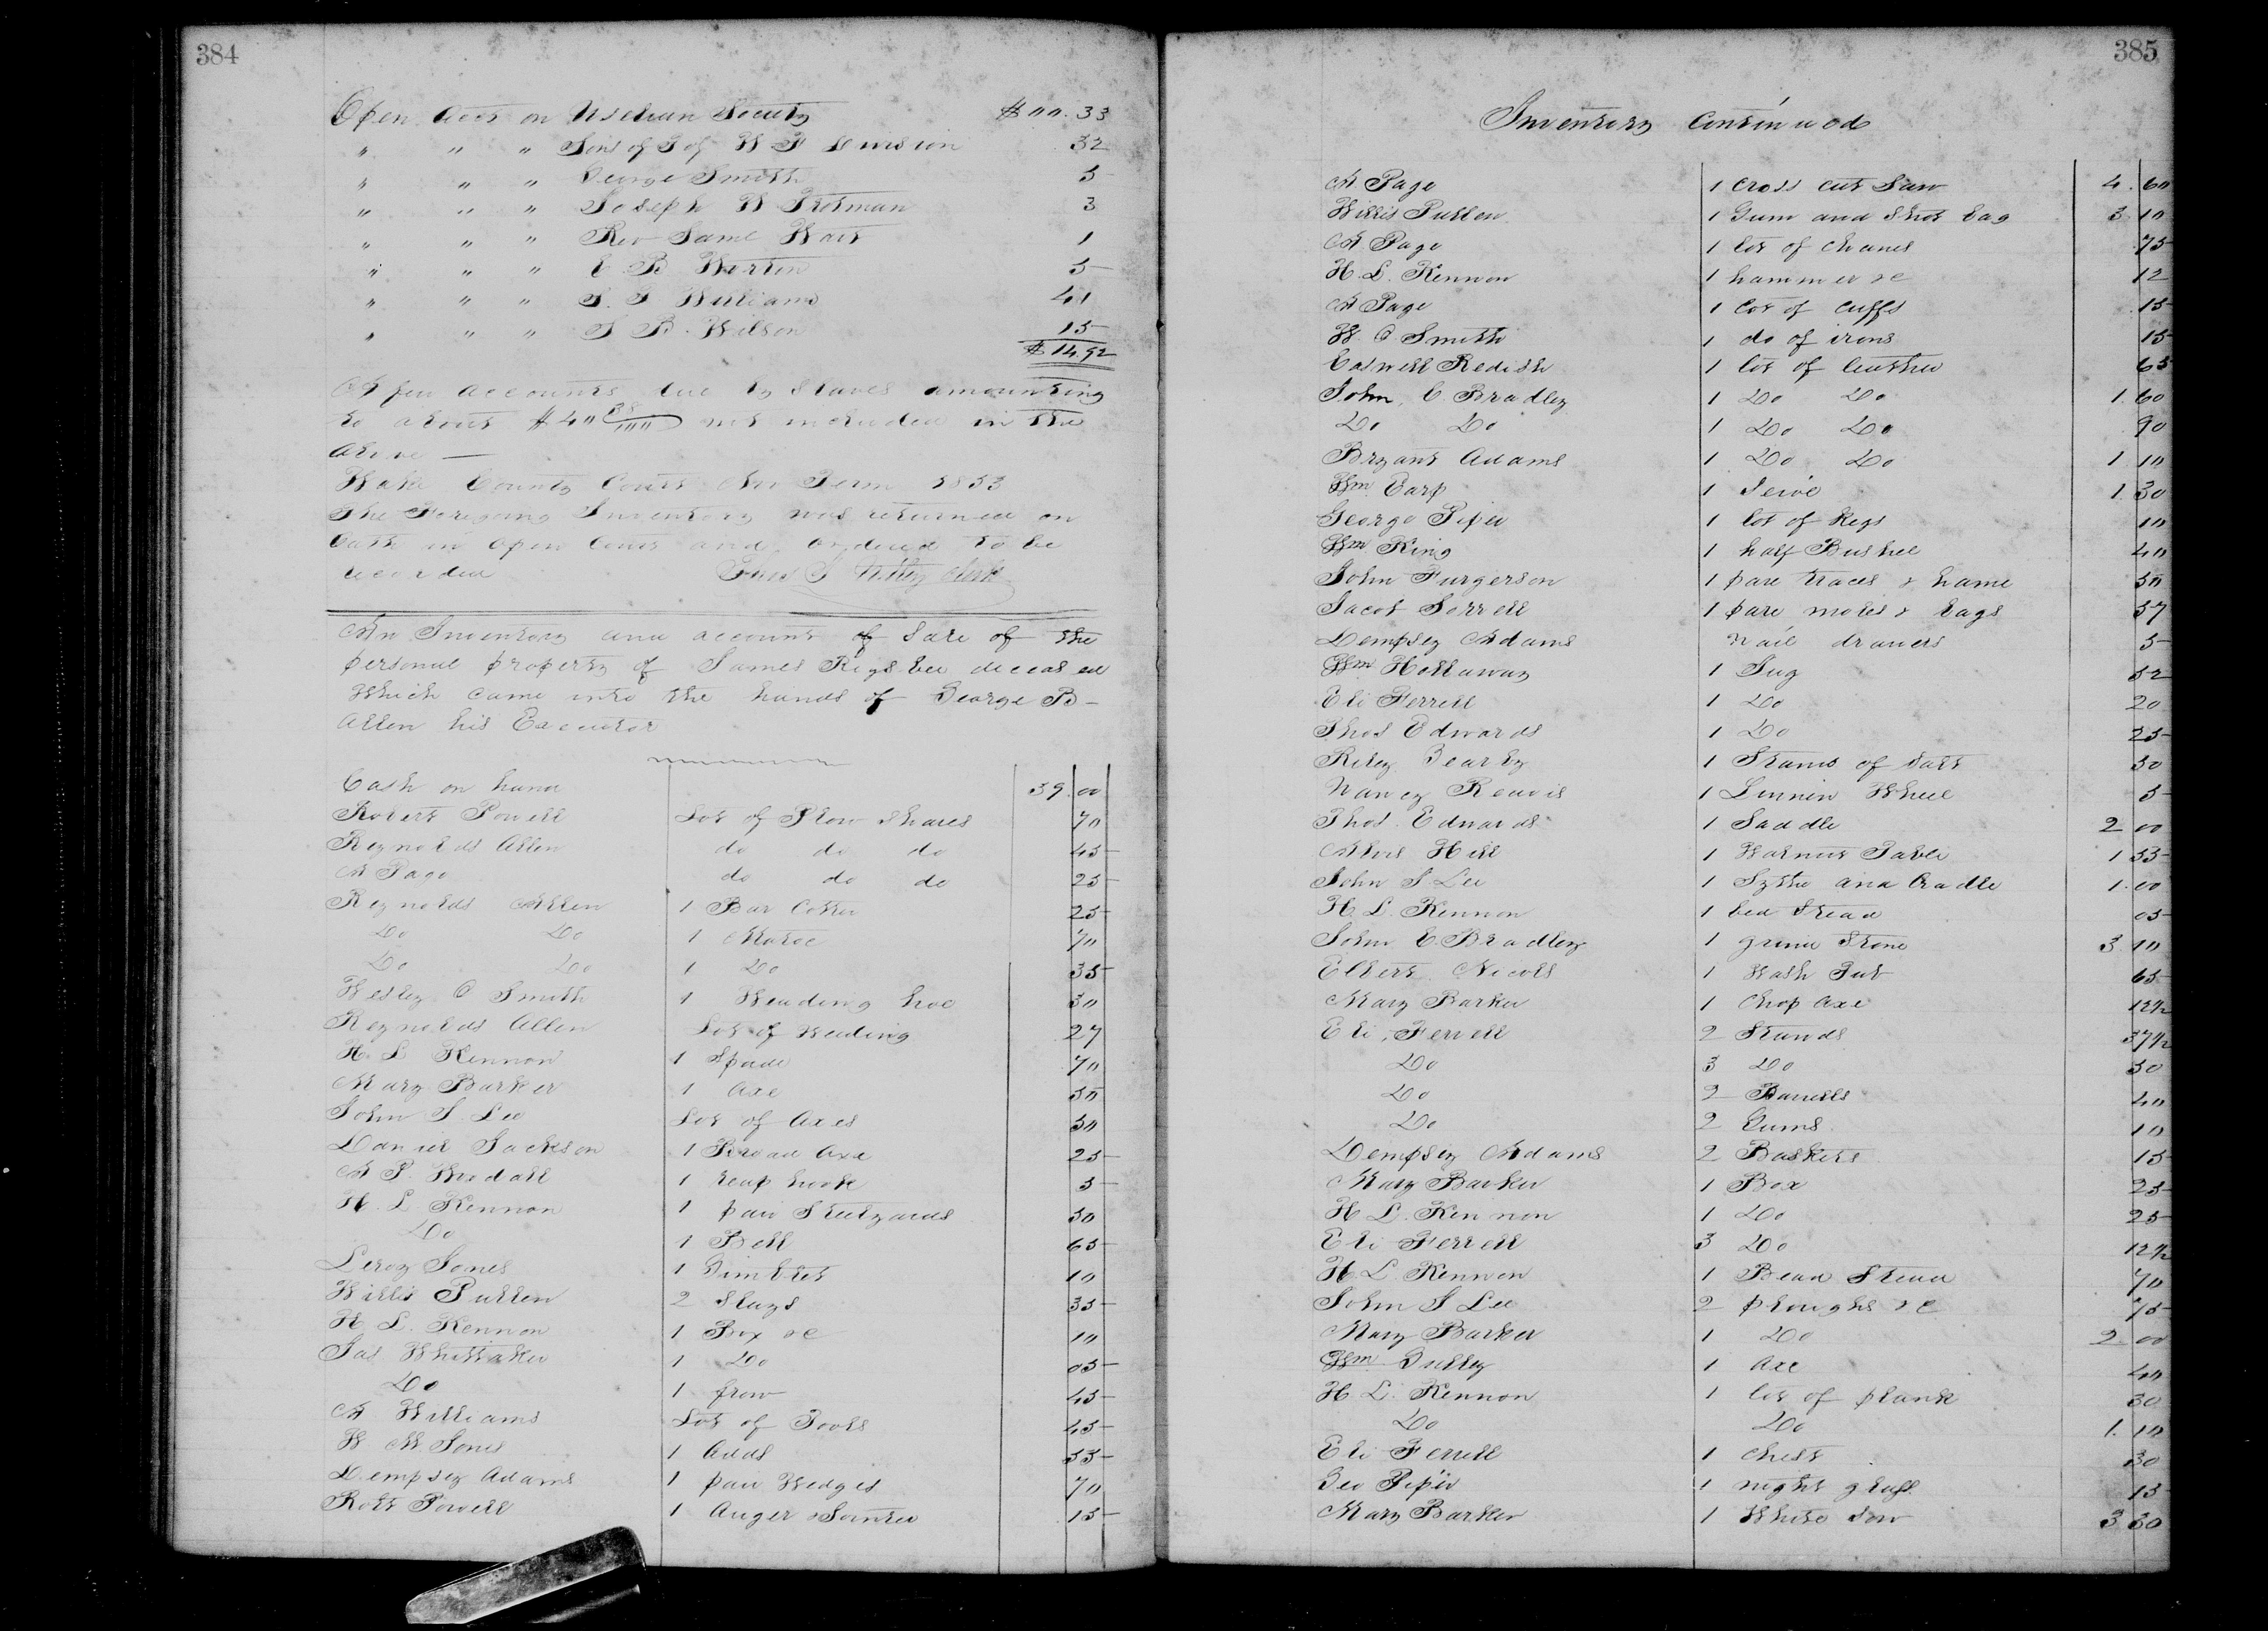 384
Open Acct on Euselian Society $00.33
" " " Sons of T of W F Division 32
" " " George Smith 5
" " " Joseph W Trotman 3
" " " Rev Saml Wait 1
" " " E B Worten 5
" " " S. J Williams 41
" " " J B. Wilson 15
$14.92
A few accounts due by slaves amounting
to about $40 38/100 not included in the
above —
Wake County Court Nov Term 1853
The Foregoing Inventory was returned on
Oath in open Court and ordered to be
recorded Thos J Utley Clerk
An Inventory and account of Sale of the
personal property of James Rigsbee deceased
Which came into the hands of George B-
Allen his Executor
Cash on hand 39.00
Robert Powell Lot of Plow Shares 70
Reynolds Allen do do do 45
A Page do do do 25
Reynolds Allen 1 Bar Coter 25
Do Do 1 Matoc 70
Do Do 1 Do 35
Wesley C Smith 1 Weading hoe 30
Reynolds Allen Lot of Weading 27
H. L Kennon 1 Spade 70
Mary Barker 1 Axe 50
John J. Lee Lot of Axes 50
Daniel Jackson 1 Broad Axe 25
A J. Woodall 1 reap hook 5
H. L Kennon 1 pair Steelyards 50
Do 1 Bell 65
Leroy Jones 1 Gimblet 10
Willis Pullen 2 Slays 35
H L. Kennon 1 Box &c 10
Jas Whittaker 1 Do 05
Do 1 frow 45
A Williams Lot of Tools 45
W M Jones 1 Adds 55
Dempsey Adams 1 pair Wedges 70
Robt Powell 1 Auger & Jointer 15
385
Inventory Continued
A Page 1 Cross cut Saw 4.60
Willis Pullen 1 Gum and Shot bag 3 10
A Page 1 lot of chanes 75
H. L. Kennon 1 hammer &c 12
A Page 1 lot of cuffs 15
W. C Smith 1 do of irons 15
Caswell Redish 1 lot of leather 65
John C. Bradley 1 Do Do 1.60
Do Do 1 Do Do 90
Bryant Adams 1 Do Do 1 10
Wm Earp 1 Seive 1.30
George Piper 1 lot of Kegs 10
Wm King 1 half Bushel 40
John Furgerson 1 pare traces & hame 50
Jacob Sorrell 1 pare moles & bags 57
Dempsey Adams nail drawers 5
Wm Hollaway 1 Jug 52
Eli Ferrell 1 Do 20
Thos Edwards 1 Do 25
Riley Bearby 1 Stand of Salt 50
Nancy Reavis 1 Linnin Wheel 5
Thos. Edwards 1 Saddle 2 00
Alvis Hill 1 Walnut Table 1 55
John J Lee 1 Sythe and Cradle 1.00
H. L. Kennon 1 bed Stead 05
John C. Bradley 1 grind Stone 3.10
Elbert Nicols 1 Wash Tub 65
Mary Barker 1 Chop axe 12½
Eli Ferrell 2 Stands 37½
Do 3 Do 50
Do 2 Barrells 40
Do 2 Gums 10
Dempsey Adams 2 Baskets 15
Mary Barker 1 Box 25
H L. Kennon 1 Do 25
Eli Ferrell 3 Do 12½
H. L Kennon 1 Bead Stead 70
John J Lee 2 ploughs &c 75
Mary Barker 1 Do 2 00
Wm Gulley 1 axe 40
H. L. Kennon 1 lot of plank 30
Do Do 1.10
Eli Ferrell 1 Chest 30
Geo Piper 1 night glass 15
Mary Barker 1 White Sow 3 30